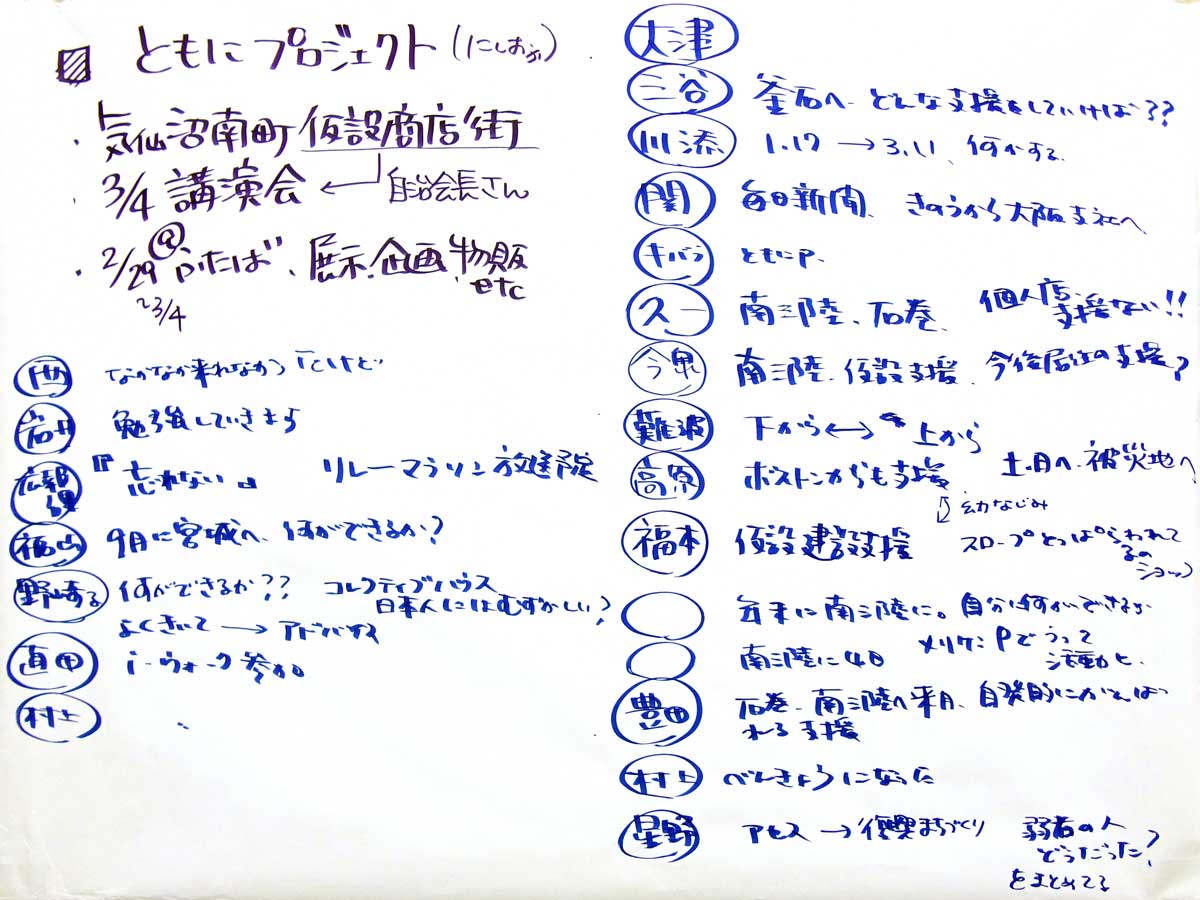 ともにプロジェクト(にしおか)
・気仙沼南町 仮設商店街
・3/4 講演会 ← 自治会長さん
・2/29 @ふたば、展示、企画、物販 etc
~3/4
西 なかなか来れなかったけど
岩井 勉強していきます
広報課 『忘れない』 リレーマラソン放送予定
福山 9月に宮城へ、何ができるか?
野崎る 何ができるか?? コレクティブハウス
日本人にはむずかしい?
よくきいて → アドバイス
直田 i-ウォーク参加
村上
大津
三谷 釜石へ どんな支援をしていけば??
川添 1.17 → 3.11、何かする
関 毎日新聞、きのうから大阪支社へ
キバラ ともにP.
久一 南三陸、石巻、個人店、支援ない!!
今泉 南三陸、仮設支援、今後居住の支援?
難波 下から ↔ 上から
土、日へ 被災地へ
高原 ボストンからも支援
↕ 幼なじみ
福本 仮設建設支援 スロープとっぱらわれて
るの
ショック
年末に南三陸に。自分に何ができるか
南三陸に4日 メリケンPでうって
活動と、
豊田 石巻、南三陸へ来月、自発的にがんば
れる支援
村上 べんきょうになった
星野 アセス → 復興まちづくり 弱者の人
どうだった?
をまとめてる